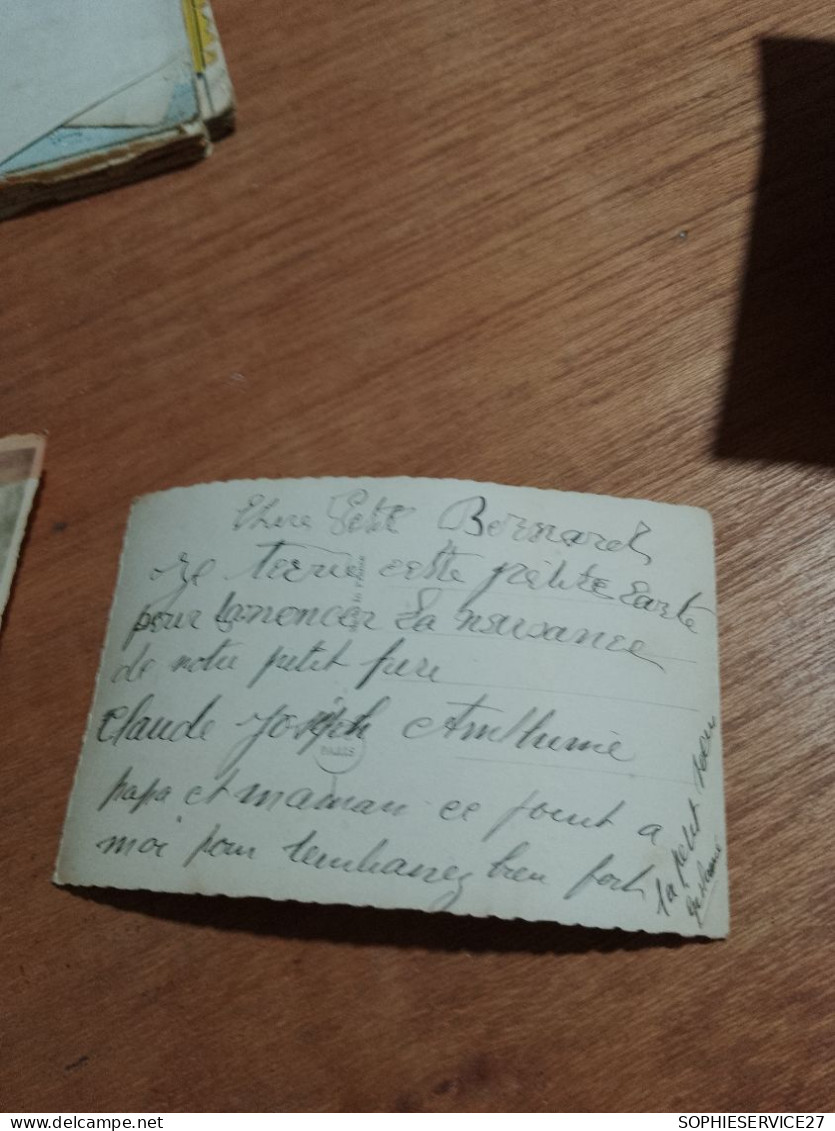 Chere Petit Bernard
Je técrie cette petite carte
pour tanoncer la nsusance
de notre petit frere
Claude Joseph
papa et maman ce joint a
moi pour tembrassez bien fort
ta petit soeur
PARIS
SOPHIESERVICE27